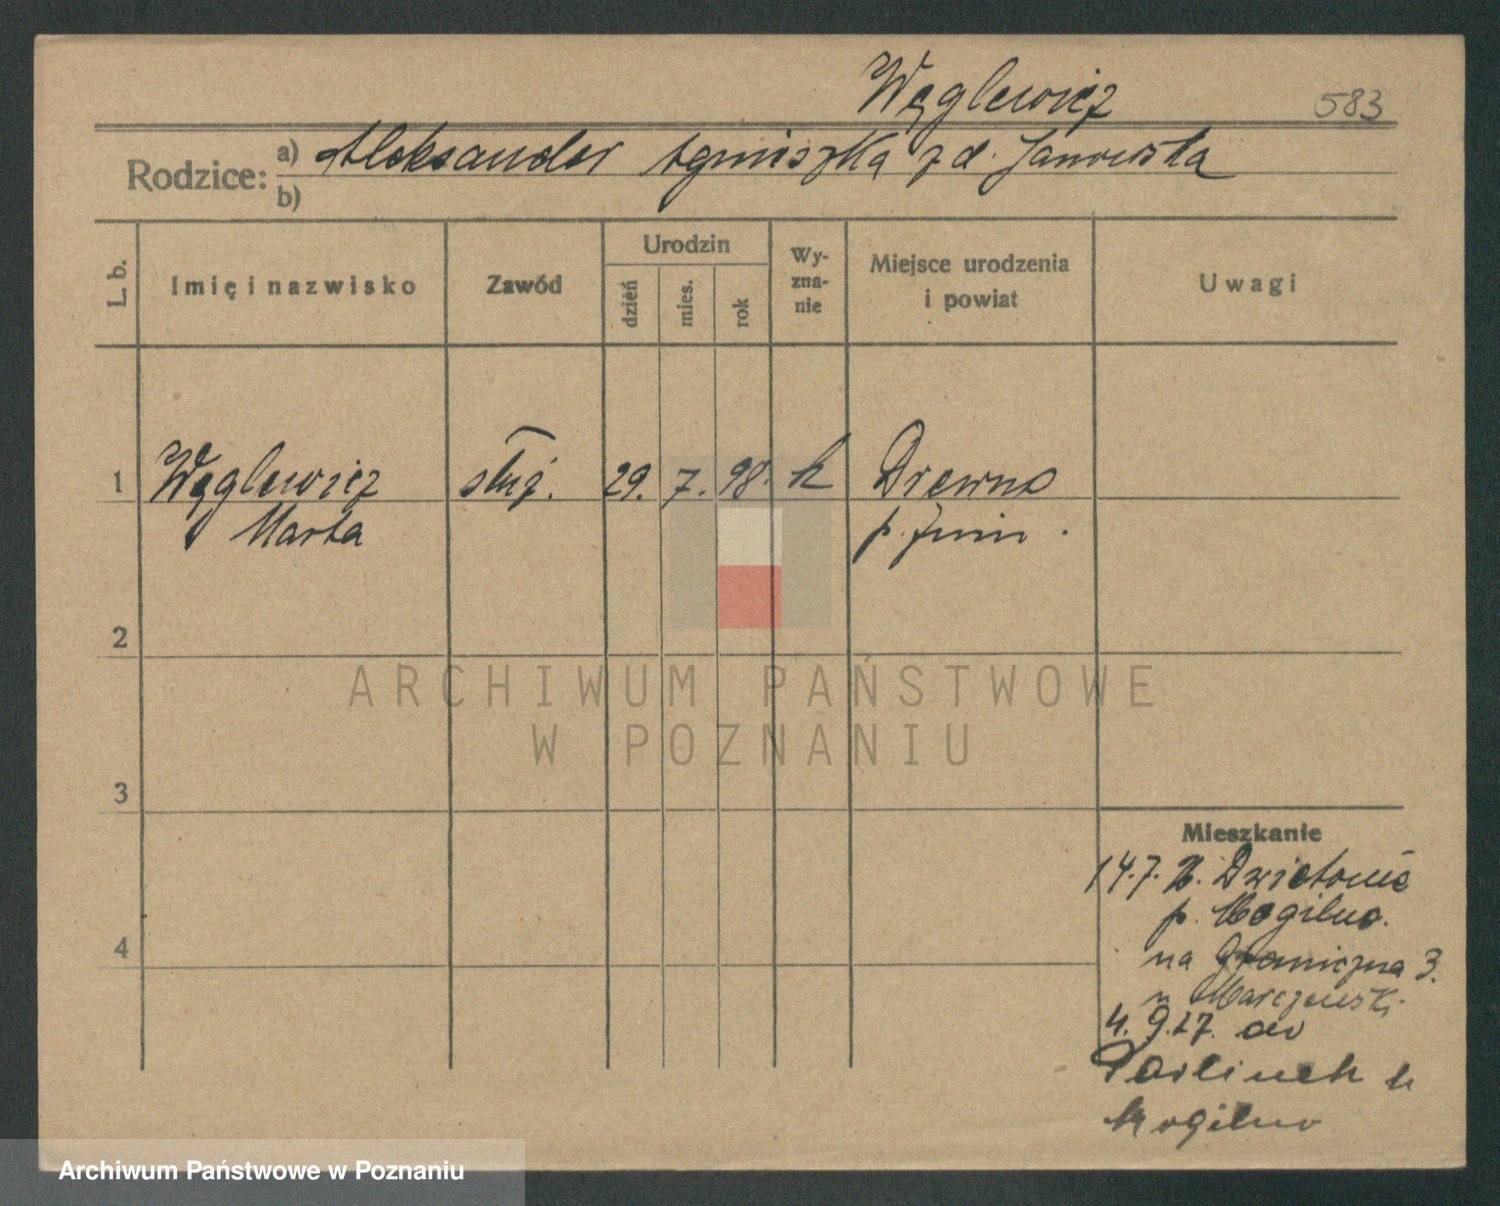 Węglewicz 583
Rodzice: a) Aleksander Agnieszka z d. Janowska
b)
L. b. Imię i nazwisko Zawód Urodzin dzień mies. rok Wy-zna-nie Miejsce urodzenia i powiat Uwagi
1 Węglewicz służ. 29. 7. 98. k Drewno
Marta p. Żnin.
2
3
4
Mieszkanie
14.7. Z. Dzwietonie
p. Mogilno.
na Graniczna 3.
u Marczewski
4. 9.27. do
Parlinek
Mogilno
ARCHIWUM PAŃSTWOWE
W POZNANIU
Archiwum Państwowe w Poznaniu